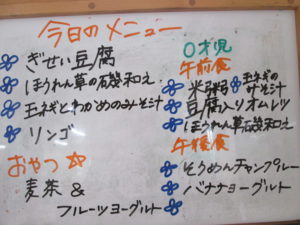 今日のメニュー
ぎせい豆腐
ほうれん草の磯和え
玉ネギとわかめのみそ汁
リンゴ
おやつ
麦茶 &
フルーツヨーグルト
0才児
午前食
米粥 玉ネギのみそ汁
豆腐入りオムレツ
ほうれん草磯和え
午後食
そうめんチャンプルー
バナナヨーグルト